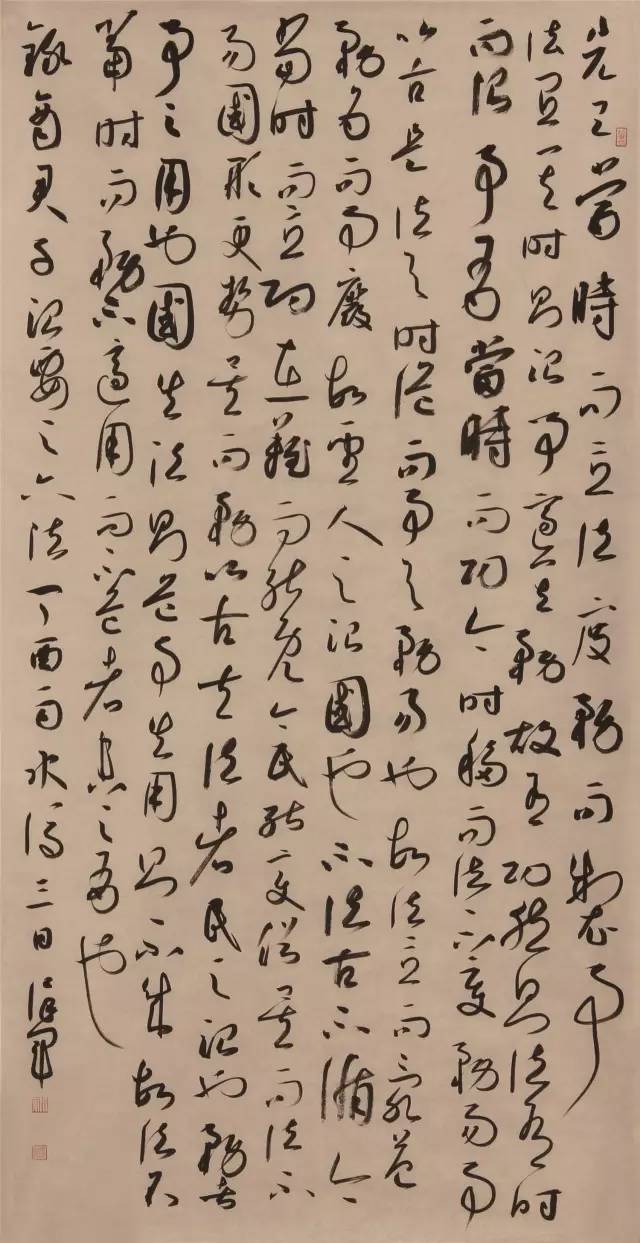 先王當時而立法度務而制事
法宜其時則治事適其務故有功然則法有時
而治事有當時而功今時移而法不變務易而事
以古是法與時詭而事與務易也故法立而亂益
務為而事廢故聖人之治國也不法古不循今
當時而立功在難而能免今民能變俗矣而法不
易國形更勢矣而務以古夫法者民之治也務者
事之用也國失法則危事失用則不成故法不
當時而務不適用而不危者未之有也
錄商君子治要之六法丁酉雨水後三日